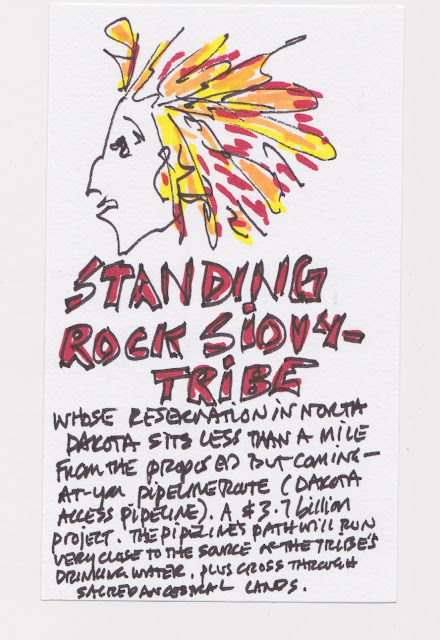 STANDING
ROCK SIOUX
TRIBE
WHOSE RESERVATION IN NORTH
DAKOTA SITS LESS THAN A MILE
FROM THE PROPOSED BUT COMING-
AT-YOU PIPELINE ROUTE (DAKOTA
ACCESS PIPELINE). A $3.7 billion
PROJECT. THE PIPELINE'S PATH WILL RUN
VERY CLOSE TO THE SOURCE OF THE TRIBE'S
DRINKING WATER. PLUS CROSS THROUGH
SACRED ANCESTRAL LANDS.